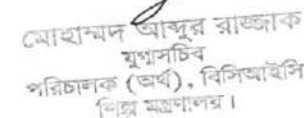 মোহাম্মদ আব্দুর রাজ্জাক
যুগ্মসচিব
পরিচালক (অর্থ), বিসিআইসি
শিল্প মন্ত্রণালয়।